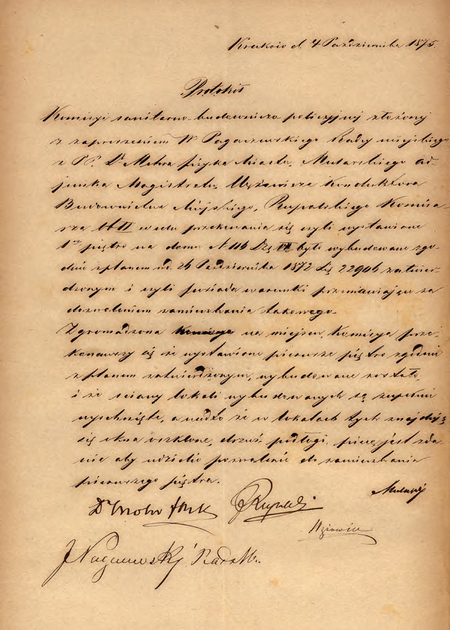 Kraków d 4 Października 1875.
Protokół
Komisyi sanitarno-budowniczo policyjnej złożonej
z zaproszeniem W Pagaczewskiego Radcy miejskiego
z PP. Dr Mohra fizyka Miasta, Mutarskiego ad-
junkta Magistratu, Konduktora
Budownictwa Miejskiego, Rupalskiego Komisa-
rza w celu przekonania się czyli wystawione
1sze piętro na domu N 116 Dz VI było wybudowane zgo-
dnie z planem z d. 26 Października 1872 L 22906 zatwier-
dzonym i czyli posiada warunki przemawiające za
dozwoleniem zamieszkania takowego.
Zgromadzona na miejscu Komisya prze-
konawszy się że wystawione pierwsze piętro zgodnie
z planem zatwierdzonym, wybudowane zostało
i że ściany lokali wybudowanych są zupełnie
wyschnięte, a nadto że w lokalach tych znajdują
się okna oszklone, drzwi, podłogi, piece, jest zda-
nie aby udzielić pozwolenie do zamieszkania
pierwszego piętra.
Dr Mohr